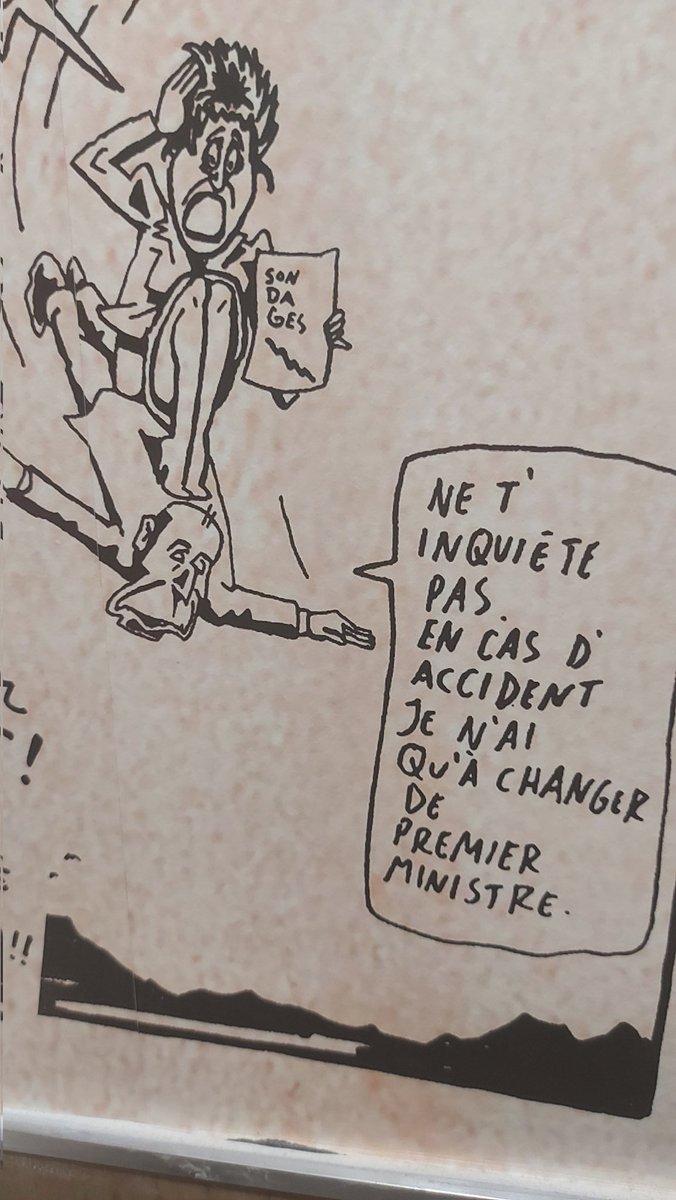 SON
DA
GES
NE T'
INQUIÈTE
PAS.
EN CAS D'
ACCIDENT
JE N'AI
QU'À CHANGER
DE
PREMIER
MINISTRE.
!
!!